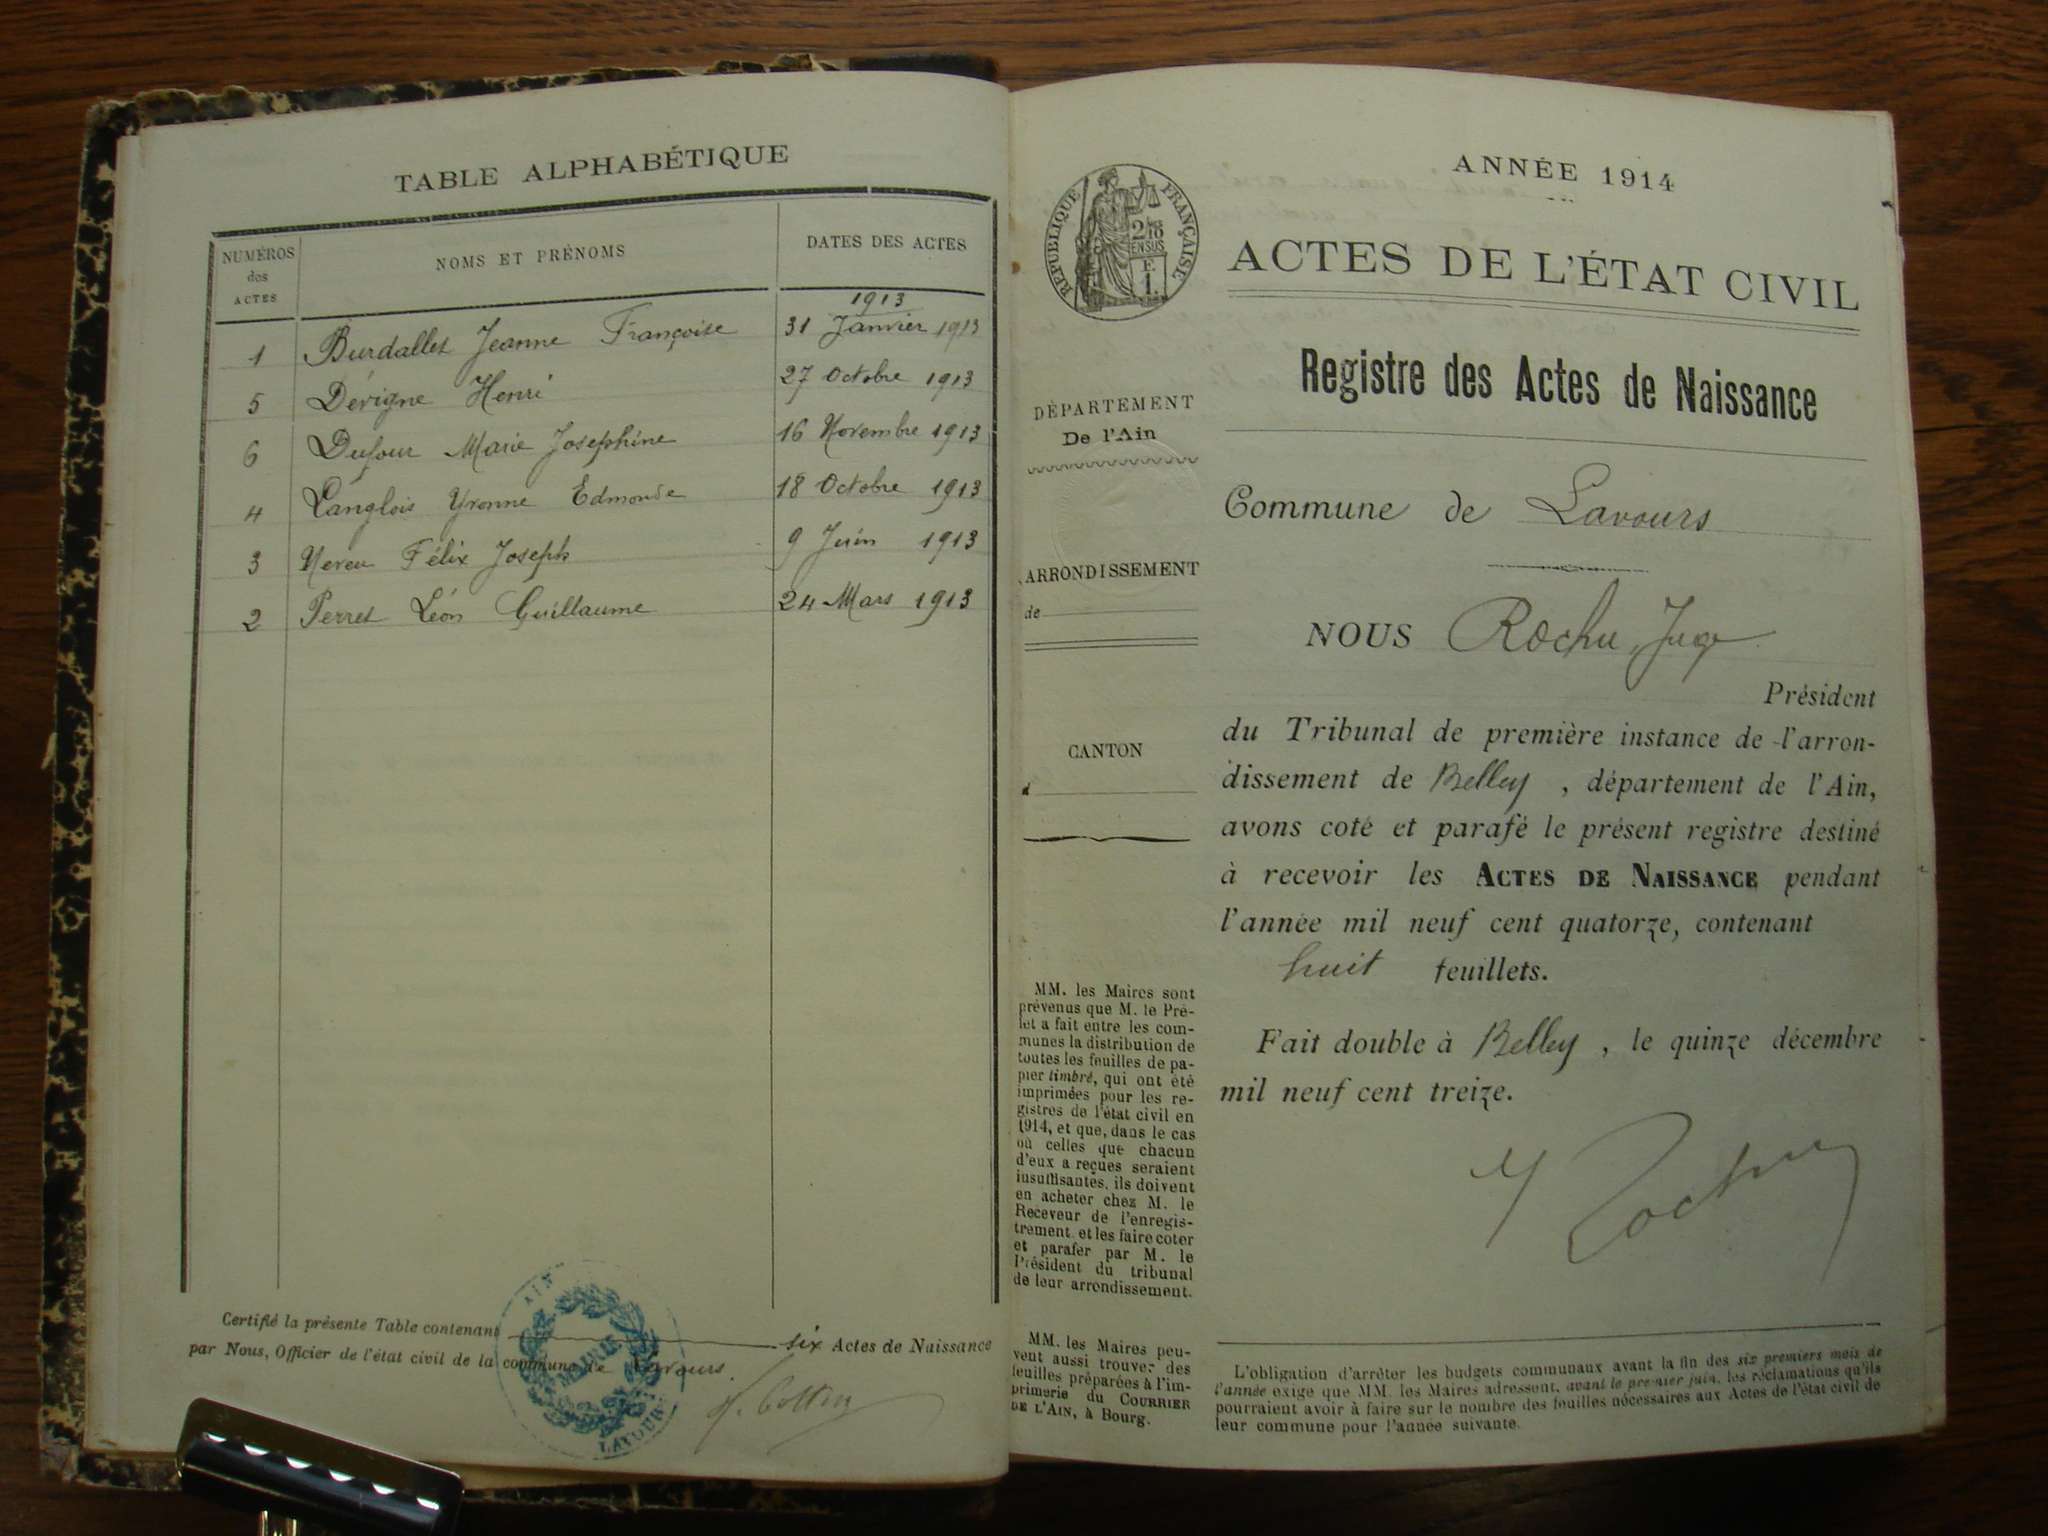 TABLE ALPHABÉTIQUE
NUMÉROS des ACTES
NOMS ET PRÉNOMS
DATES DES ACTES
1913
1 Burdallet Jeanne Françoise 31 Janvier 1913
5 Dérigne Henri 27 Octobre 1913
6 Dufour Marie Josephine 16 Novembre 1913
4 Langlois Yvonne Edmonde 18 Octobre 1913
3 Nereu Félix Joseph 9 Juin 1913
2 Perret Léon Guillaume 24 Mars 1913
Certifié la présente Table contenant six Actes de Naissance
par Nous, Officier de l'état civil de la commune de Lavours.
AIN
MAIRIE
LAVOURS
ANNÉE 1914
RÉPUBLIQUE FRANÇAISE
ACTES DE L'ÉTAT CIVIL
Registre des Actes de Naissance
DÉPARTEMENT
De l'Ain
Commune de Lavours
ARRONDISSEMENT
de
NOUS Rochu, Juge
Président
du Tribunal de première instance de l'arron-
CANTON
d
dissement de Belley, département de l'Ain,
avons coté et parafé le présent registre destiné
à recevoir les ACTES DE NAISSANCE pendant
l'année mil neuf cent quatorze, contenant
huit feuillets.
Fait double à Belley, le quinze décembre
mil neuf cent treize.
Rochu
MM. les Maires sont
prévenus que M. le Pré-
fet a fait entre les com-
munes la distribution de
toutes les feuilles de pa-
pier timbré, qui ont été
imprimées pour les re-
gistres de l'état civil en
1914, et que, dans le cas
où celles que chacun
d'eux a reçues seraient
insuffisantes, ils doivent
en acheter chez M. le
Receveur de l'enregis-
trement, et les faire coter
et parafer par M. le
Président du tribunal
de leur arrondissement.
MM. les Maires peu-
vent aussi trouver des
feuilles préparées à l'im-
primerie du COURRIER
DE L'AIN, à Bourg.
L'obligation d'arrêter les budgets communaux avant la fin des six premiers mois de
l'année exige que MM. les Maires adressent, avant le premier juin, les réclamations qu'ils
pourraient avoir à faire sur le nombre des feuilles nécessaires aux Actes de l'état civil de
leur commune pour l'année suivante.